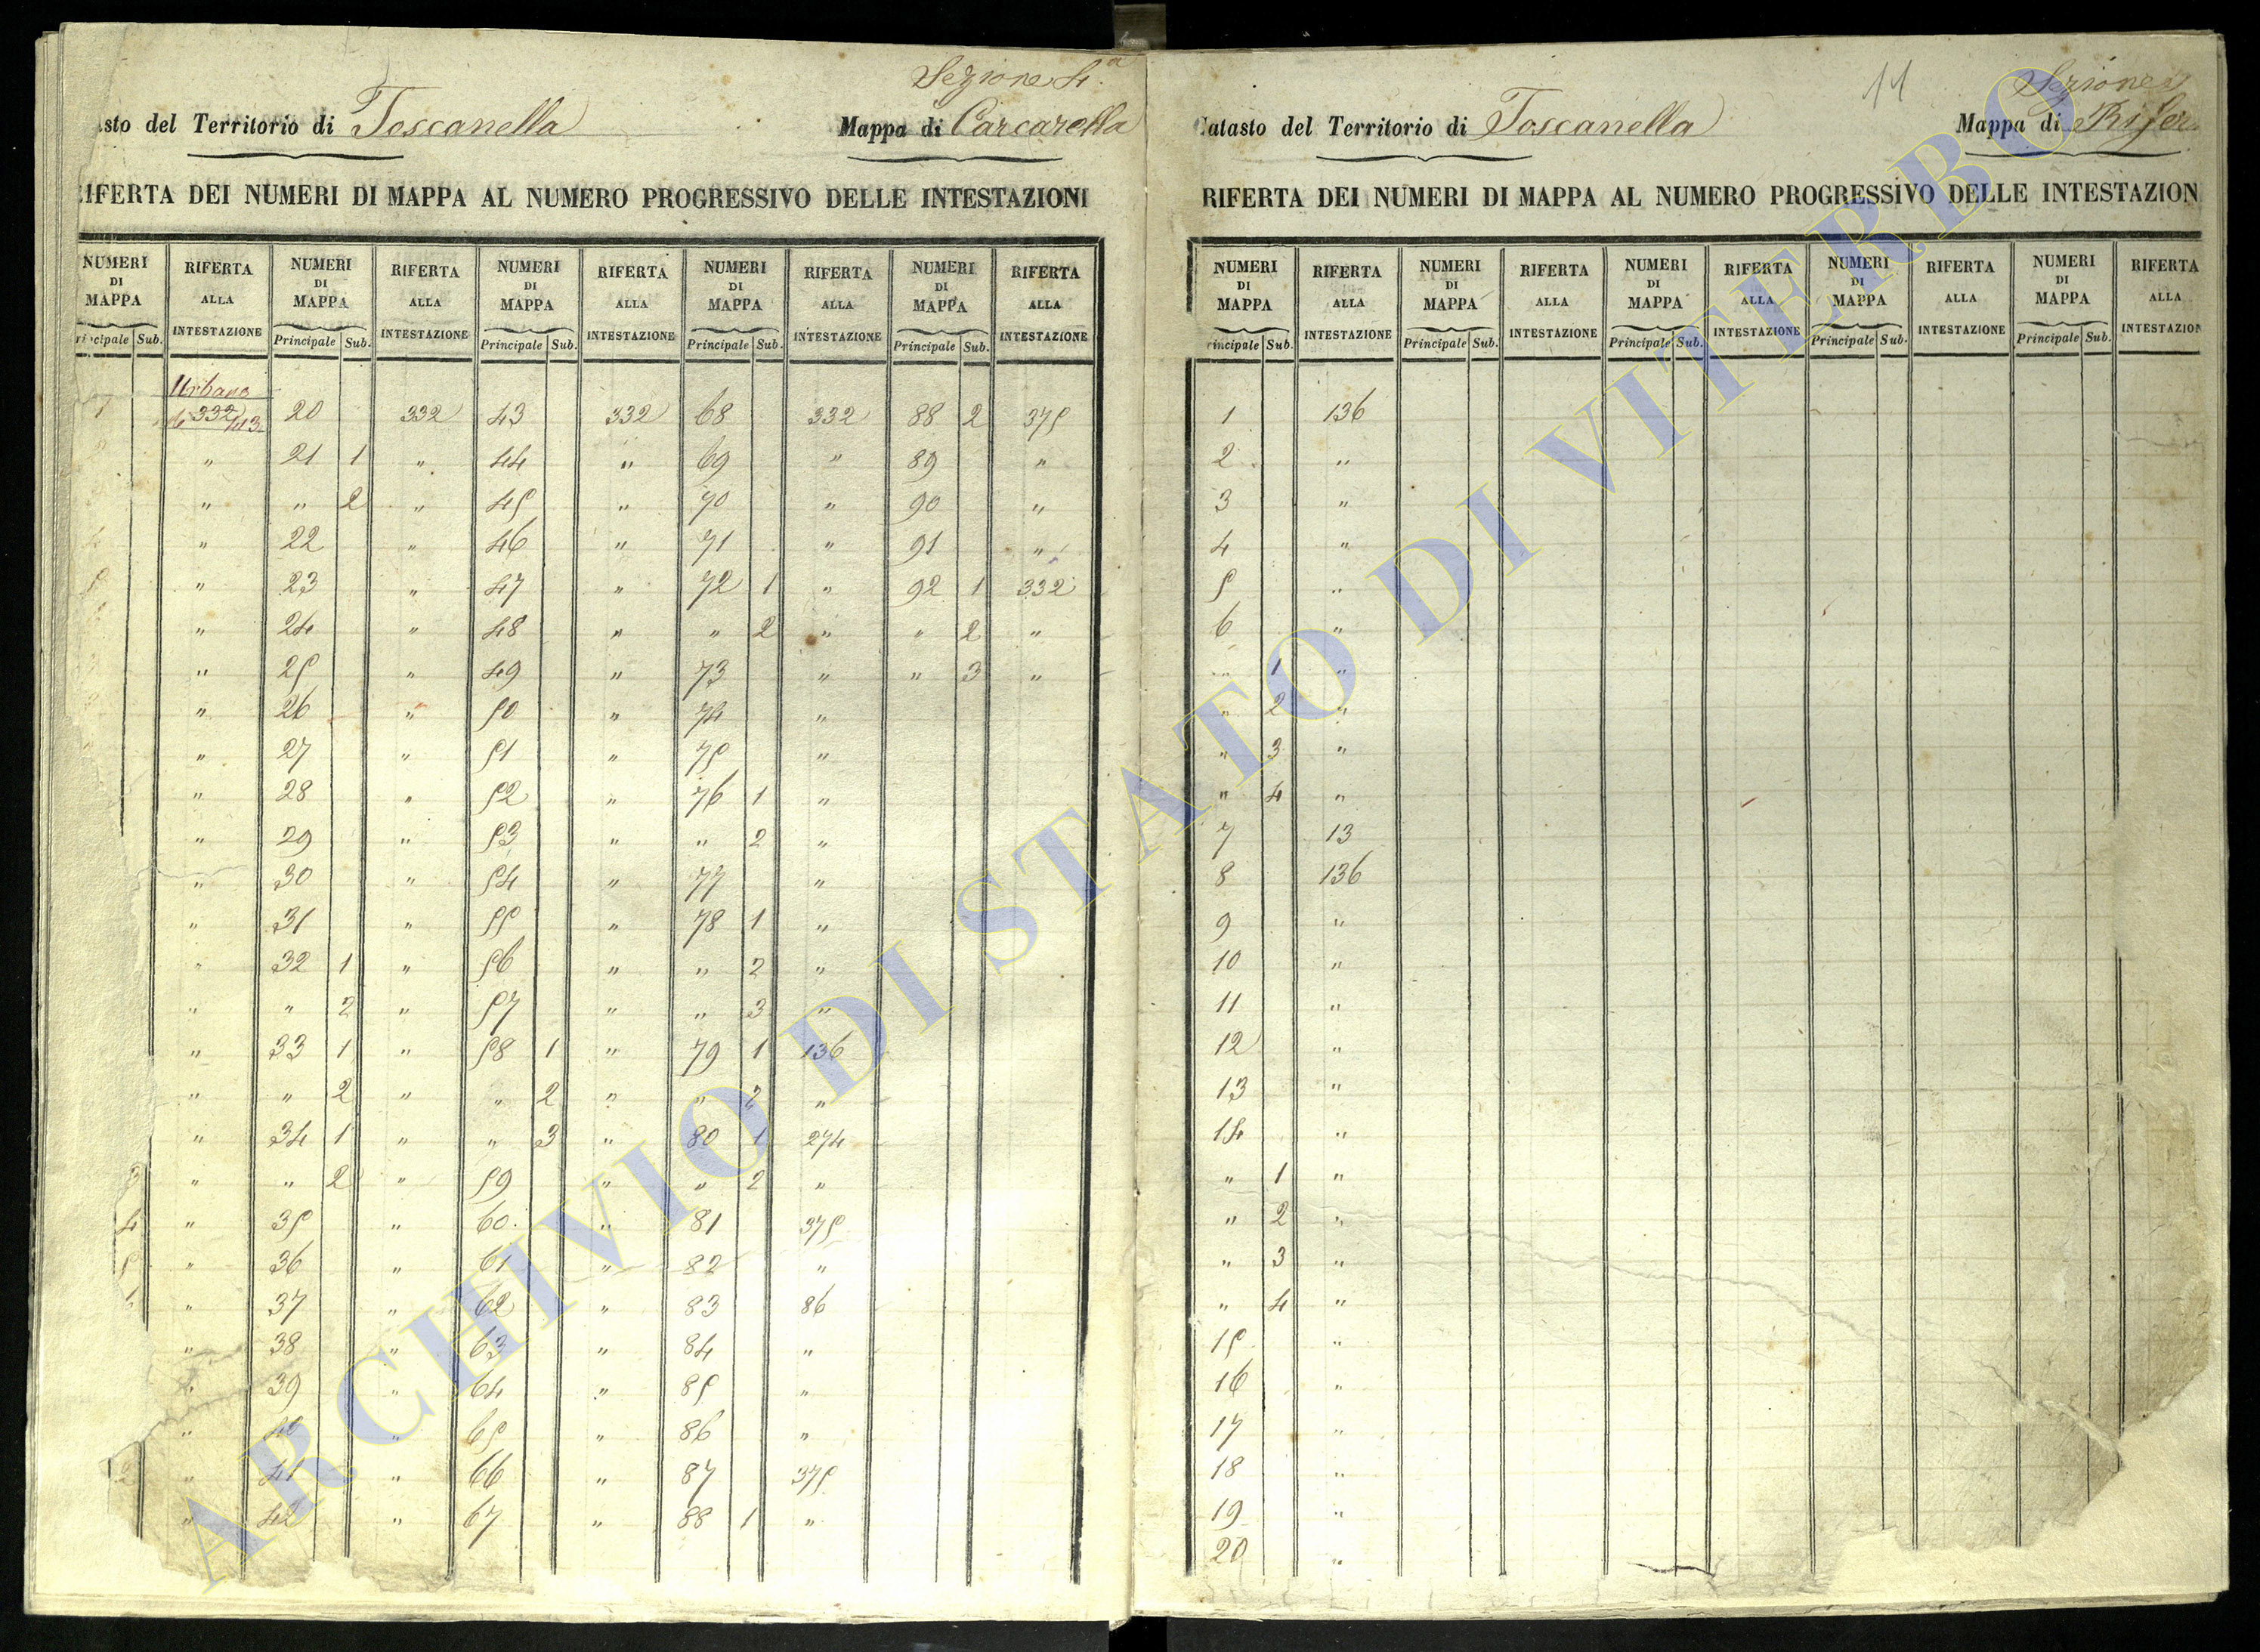 Sezione 4.a
asto del Territorio di Toscanella
Mappa di Carcarella
RIFERTA DEI NUMERI DI MAPPA AL NUMERO PROGRESSIVO DELLE INTESTAZIONI
NUMERI DI MAPPA RIFERTA ALLA INTESTAZIONE NUMERI DI MAPPA RIFERTA ALLA INTESTAZIONE NUMERI DI MAPPA RIFERTA ALLA INTESTAZIONE NUMERI DI MAPPA RIFERTA ALLA INTESTAZIONE NUMERI DI MAPPA RIFERTA ALLA INTESTAZIONE
rincipale Sub. Principale Sub. Principale Sub. Principale Sub. Principale Sub.
Urbano
332 20 332 43 332 68 332 88 2 375
" 21 1 " 44 " 69 " 89 "
" " 2 " 45 " 70 " 90 "
" 22 " 46 " 71 " 91 "
5 " 23 " 47 " 72 1 " 92 1 332
" 24 " 48 " " 2 " " 2 "
" 25 " 49 " 73 " " 3 "
" 26 " 50 " 74 "
" 27 " 51 " 75 "
" 28 " 52 " 76 1 "
" 29 " 53 " " 2 "
" 30 " 54 " 77 "
" 31 " 55 " 78 1 "
" 32 1 " 56 " " 2 "
" " 2 " 57 " " 3 "
" 33 1 " 58 1 " 79 1 136
" " 2 " " 2 " " 2 "
" 34 1 " " 3 " 80 1 274
3 " " 2 " 59 " " 2 "
4 " 35 " 60 " 81 375
5 " 36 " 61 " 82 "
" 37 " 62 " 83 86
" 38 " 63 " 84 "
" 39 " 64 " 85 "
" 40 " 65 " 86 "
2 " 41 " 66 " 87 375
" 42 " 67 " 88 1 "
11
Sezione
Catasto del Territorio di Toscanella
Mappa di Rifer
RIFERTA DEI NUMERI DI MAPPA AL NUMERO PROGRESSIVO DELLE INTESTAZION
NUMERI DI MAPPA RIFERTA ALLA INTESTAZIONE NUMERI DI MAPPA RIFERTA ALLA INTESTAZIONE NUMERI DI MAPPA RIFERTA ALLA INTESTAZIONE NUMERI DI MAPPA RIFERTA ALLA INTESTAZIONE NUMERI DI MAPPA RIFERTA ALLA INTESTAZION
rincipale Sub. Principale Sub. Principale Sub. Principale Sub. Principale Sub.
1 136
2 "
3 "
4 "
5 "
6 "
" 1 "
" 2 "
" 3 "
" 4 "
7 13
8 136
9 "
10 "
11 "
12 "
13 "
14 "
" 1 "
" 2 "
" 3 "
" 4 "
15 "
16 "
17 "
18 "
19 "
20 "
ARCHIVIO DI STATO DI VITERBO